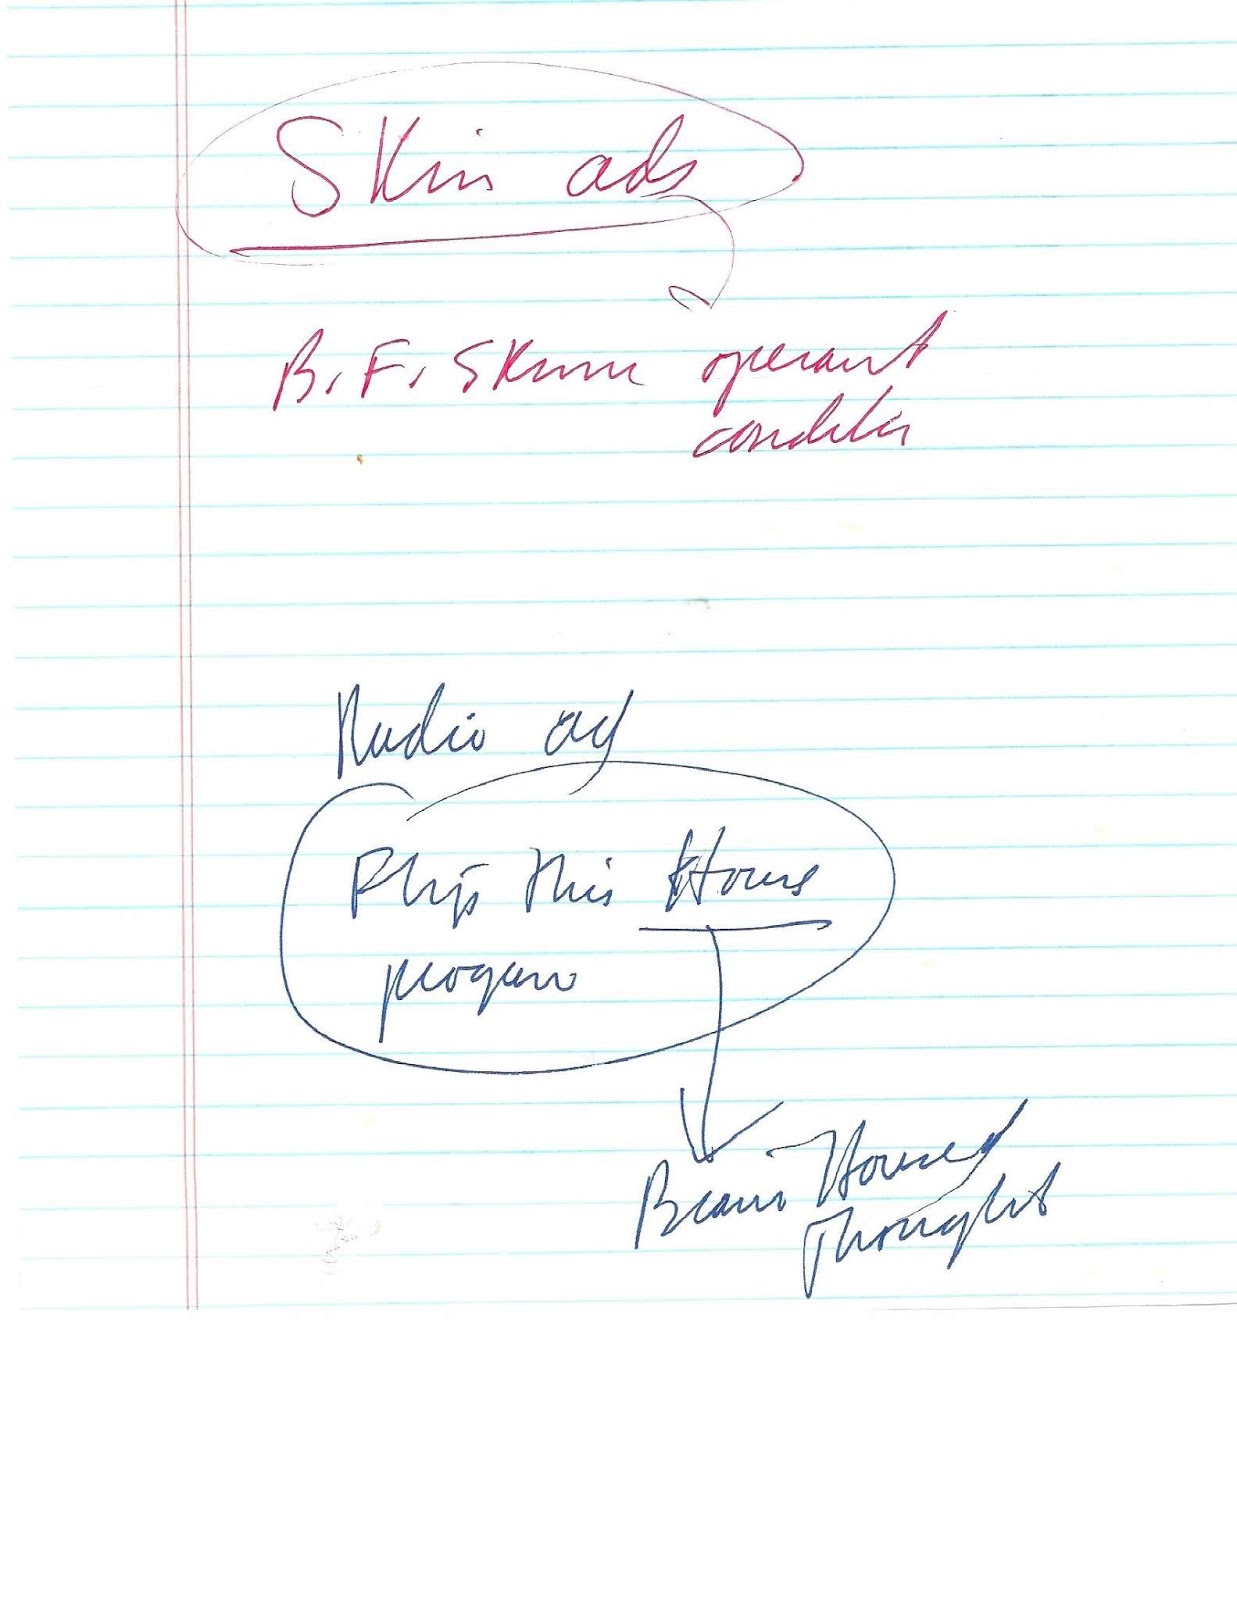 Skin ads
B. F. Skinner operant
condition
Radio ad
Flip This House
program
Brain Housed
Thought